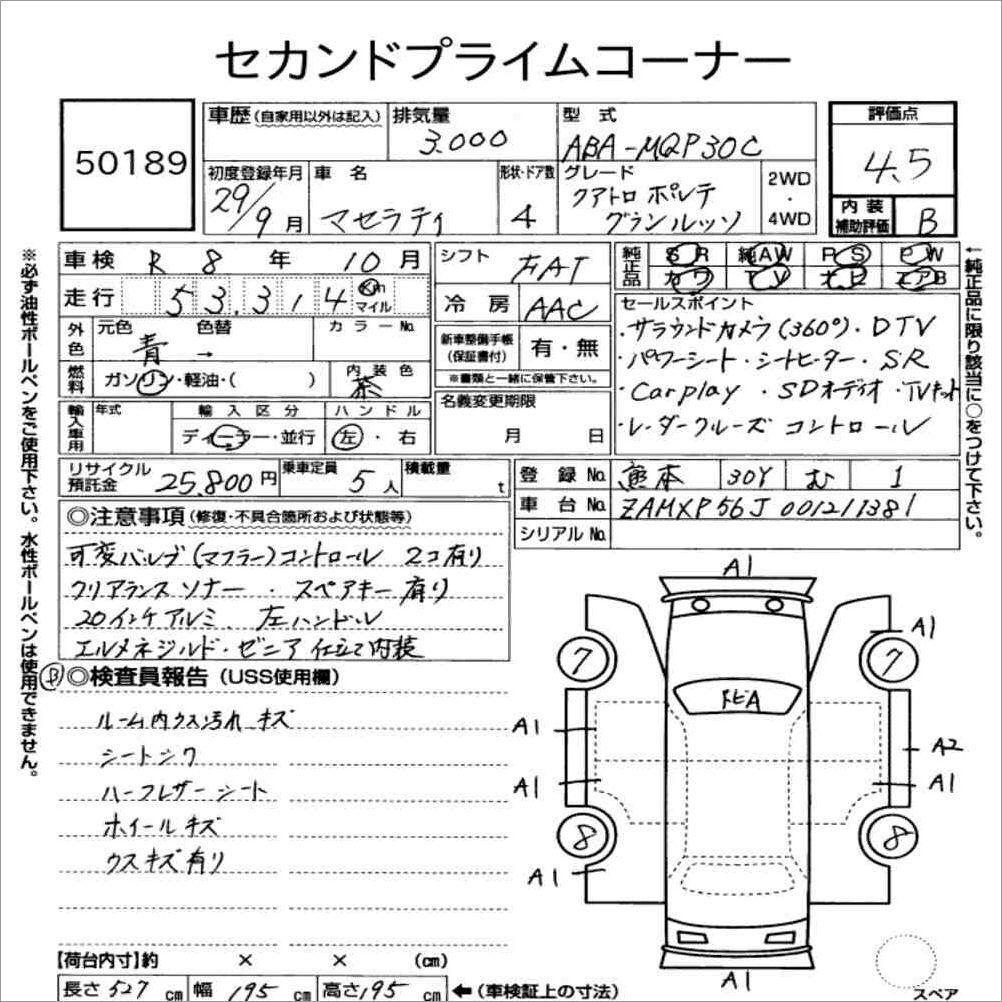 セカンドプライムコーナー
50189
車歴 (自家用以外は記入)
排気量
3.000
型式
ABA-MQP30C
評価点
4.5
初度登録年月
29/9月
車名
マセラティ
形状・ドア数
4
グレード
クアトロ ポルテ
グランルッソ
2WD
・
4WD
内装
補助評価
B
車検 R 8 年 10 月
走行 5 3, 3 1 4 Km
マイル
シフト
FAT
冷房
AAC
純正品
SR 純AW PS PW
カワ TV ナビ エアB
←純正品に限り該当に○をつけて下さい。
外色
元色
青
色替
→
カラーNo.
燃料
ガソリン・軽油・( )
内装色
茶
新車整備手帳
(保証書付)
有・無
※書類と一緒に保管下さい。
セールスポイント
・サラウンドカメラ(360°)・DTV
・パワーシート・シートヒーター・SR
・Carplay ・SDオーディオ・TVキット
・レーダークルーズ コントロール
輸入車用
年式
輸入区分
ディーラー・並行
ハンドル
左・右
名義変更期限
月 日
リサイクル
預託金
25,800円
乗車定員
5人
積載量
t
登録No.
熊本 301 む 1
車台No.
ZAMXP56J 001211381
シリアルNo.
※必ず油性ボールペンをご使用下さい。水性ボールペンは使用できません。
◎注意事項 (修復・不具合箇所および状態等)
可変バルブ(マフラー)コントロール 2コ有り
クリアランスソナー ・スペアキー有り
20インチアルミ、左ハンドル
エルメネジルド・ゼニア仕立て内装
B ◎検査員報告 (USS使用欄)
ルーム内ウス汚れ キズ
シートシワ
ハーフレザーシート
ホイールキズ
ウスキズ有り
A1
A1
7
7
トビA
A1
A2
A1
A1
8
8
A1
A1
スペア
【荷台内寸】約 × × (cm)
長さ 527 cm 幅 195 cm 高さ 195 cm ←(車検証上の寸法)